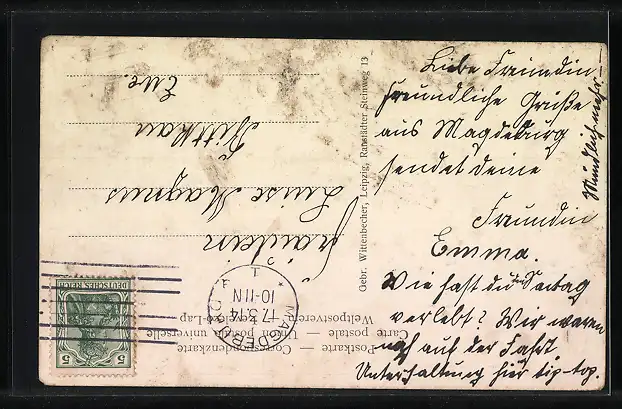 Liebe Freundin
Freundliche Grüße
aus Magdeburg
sendet deine
Freundin
Emma.
Wie hast du den Sontag
verlebt? Wir waren
noch auf der Fahrt.
Unterhaltung hier tip-top.
Mündlich mehr.
Gebr. Wittenbecher, Leipzig, Ranstädter Steinweg 13
Postkarte — Correspondenzkarte
Carte postale — Union postale universelle
Weltpostverein
Fräulein
Luise Magnus
MAGDEBURG
17.5.14
10-11 N
DEUTSCHES REICH
5 5